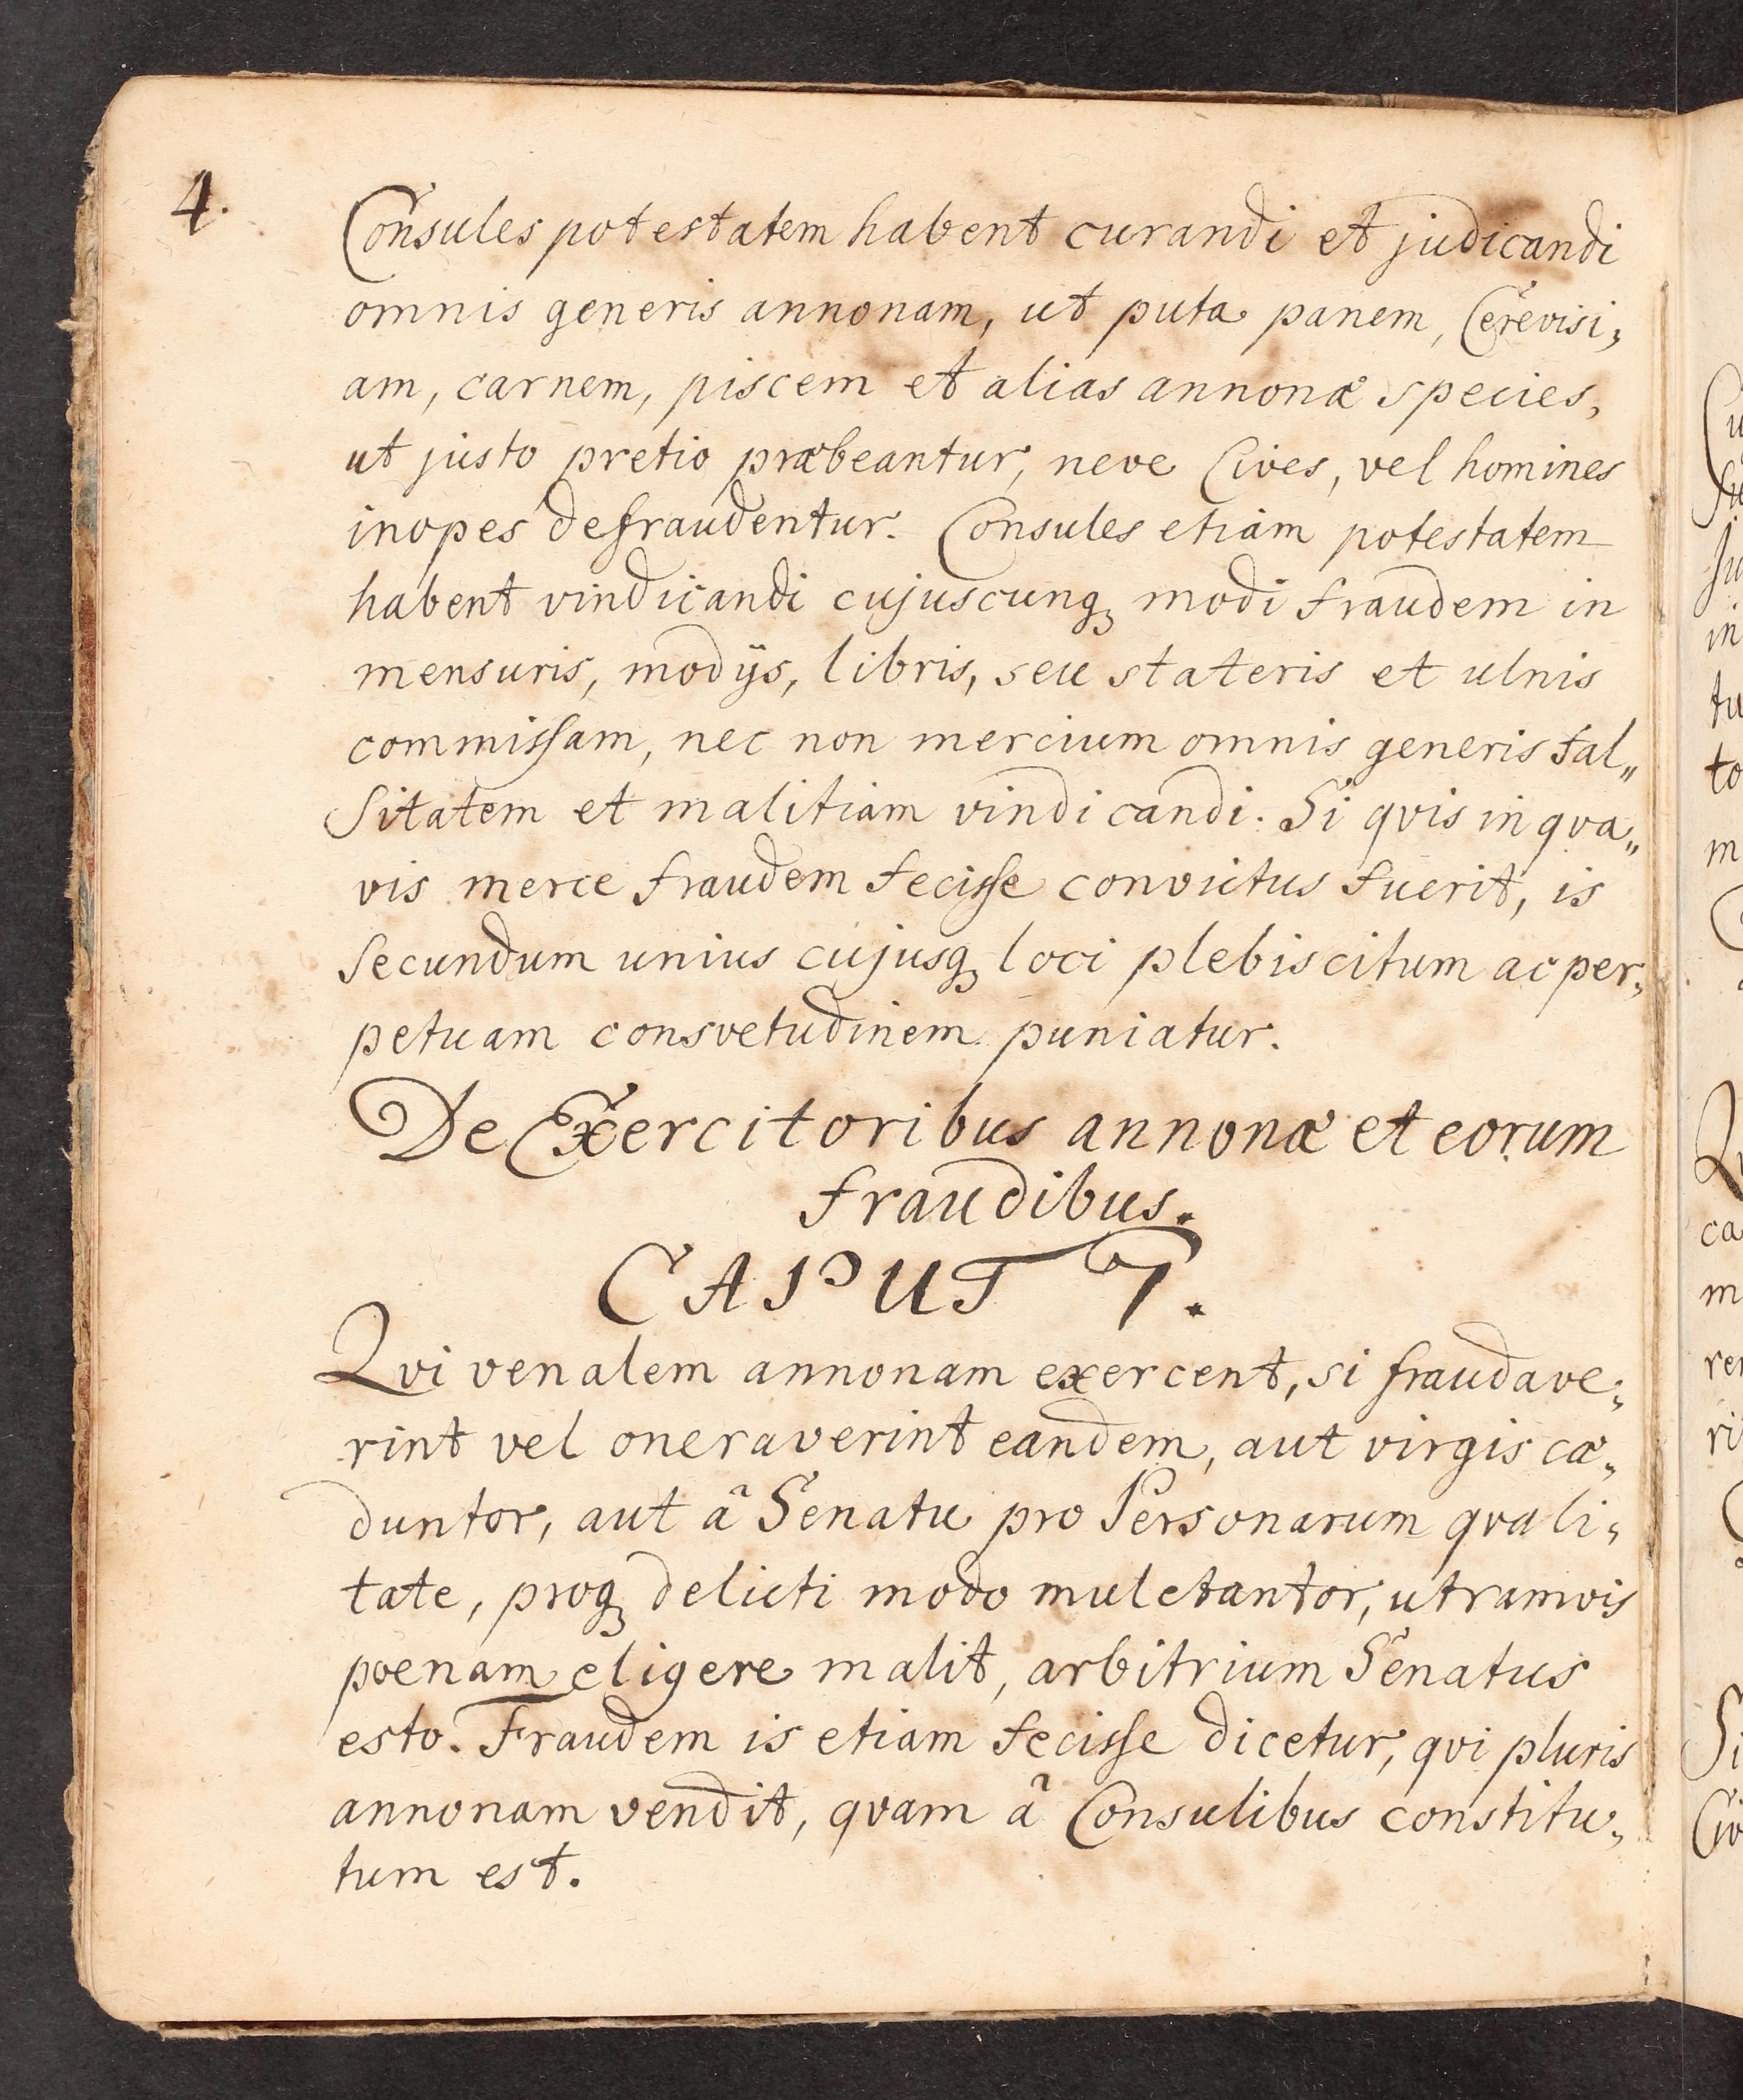 4.
Consules potestatem habent curandi et judicandi
omnis generis annonam, ut puta panem, Cerevisi„
am, carnem, piscem et alias annonæ species,
ut justo pretio præbeantur, neve Cives, vel homines
inopes defraudentur. Consules etiam potestatem
habent vindicandi cujuscunq; modi fraudem in
mensuris, modijs, libris, seu stateris et ulnis
commiſsam, nec non mercium omnis generis fal„
sitatem et malitiam vindicandi. Si qvis in qva„
vis merce fraudem feciſse convictus fuerit, is
secundum unius cujusq; loci plebiscitum ac per„
petuam consvetudinem puniatur.
De Exercitoribus annonæ et eorum
fraudibus.
CAPUT 7.
Qvi venalem annonam exercent, si fraudave„
rint vel oneraverint eandem, aut virgis cæ„
duntor, aut â Senatu pro Personarum qvali„
tate, proq; delicti modo mulctantor, utramvis
poenam eligere malit, arbitrium Senatus
esto. Fraudem is etiam feciſse dicetur, qvi pluris
annonam vendit, qvam â Consulibus constitu„
tum est.